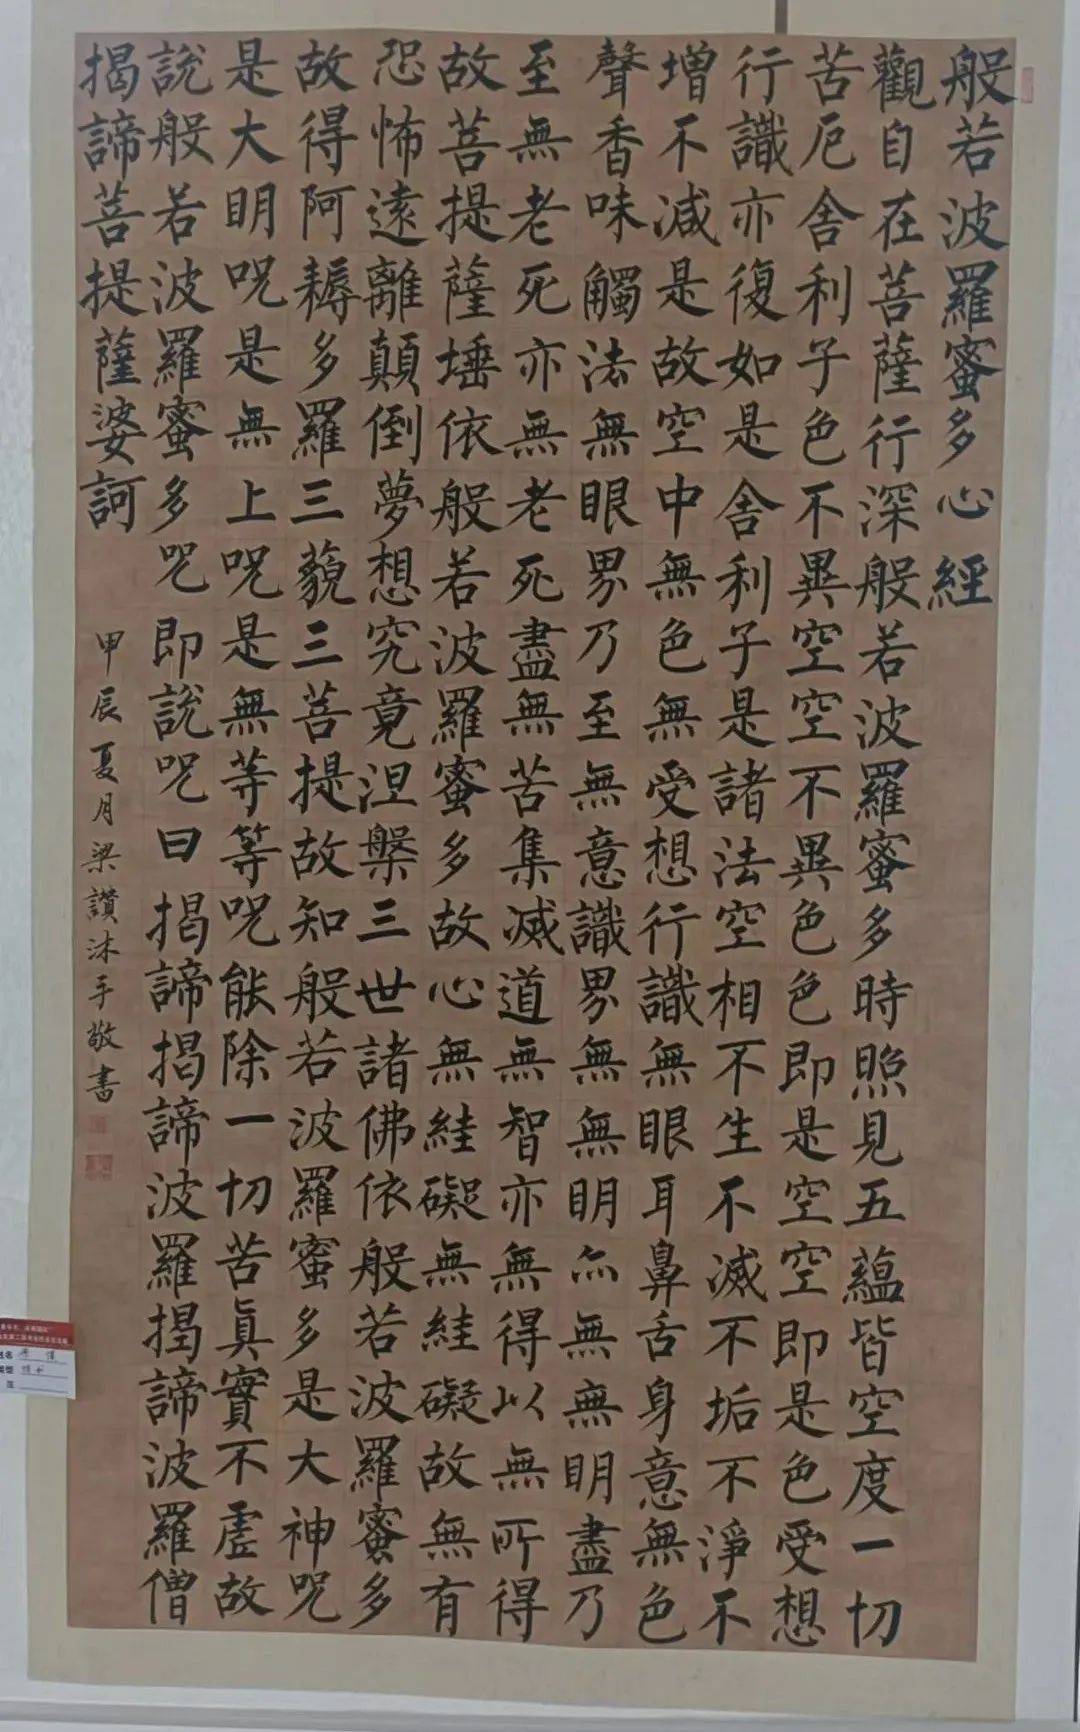 般若波羅蜜多心經
觀自在菩薩行深般若波羅蜜多時照見五蘊皆空度一切
苦厄舍利子色不異空空不異色色即是空空即是色受想
行識亦復如是舍利子是諸法空相不生不滅不垢不淨不
增不減是故空中無色無受想行識無眼耳鼻舌身意無色
聲香味觸法無眼界乃至無意識界無無明亦無無明盡乃
至無老死亦無老死盡無苦集滅道無智亦無得以無所得
故菩提薩埵依般若波羅蜜多故心無絓礙無絓礙故無有
恐怖遠離顛倒夢想究竟涅槃三世諸佛依般若波羅蜜多
故得阿耨多羅三藐三菩提故知般若波羅蜜多是大神呪
是大明呪是無上呪是無等等呪能除一切苦真實不虛故
說般若波羅蜜多咒即說呪曰揭諦揭諦波羅揭諦波羅僧
揭諦菩提薩婆訶
甲辰夏月梁讚沐手敬書